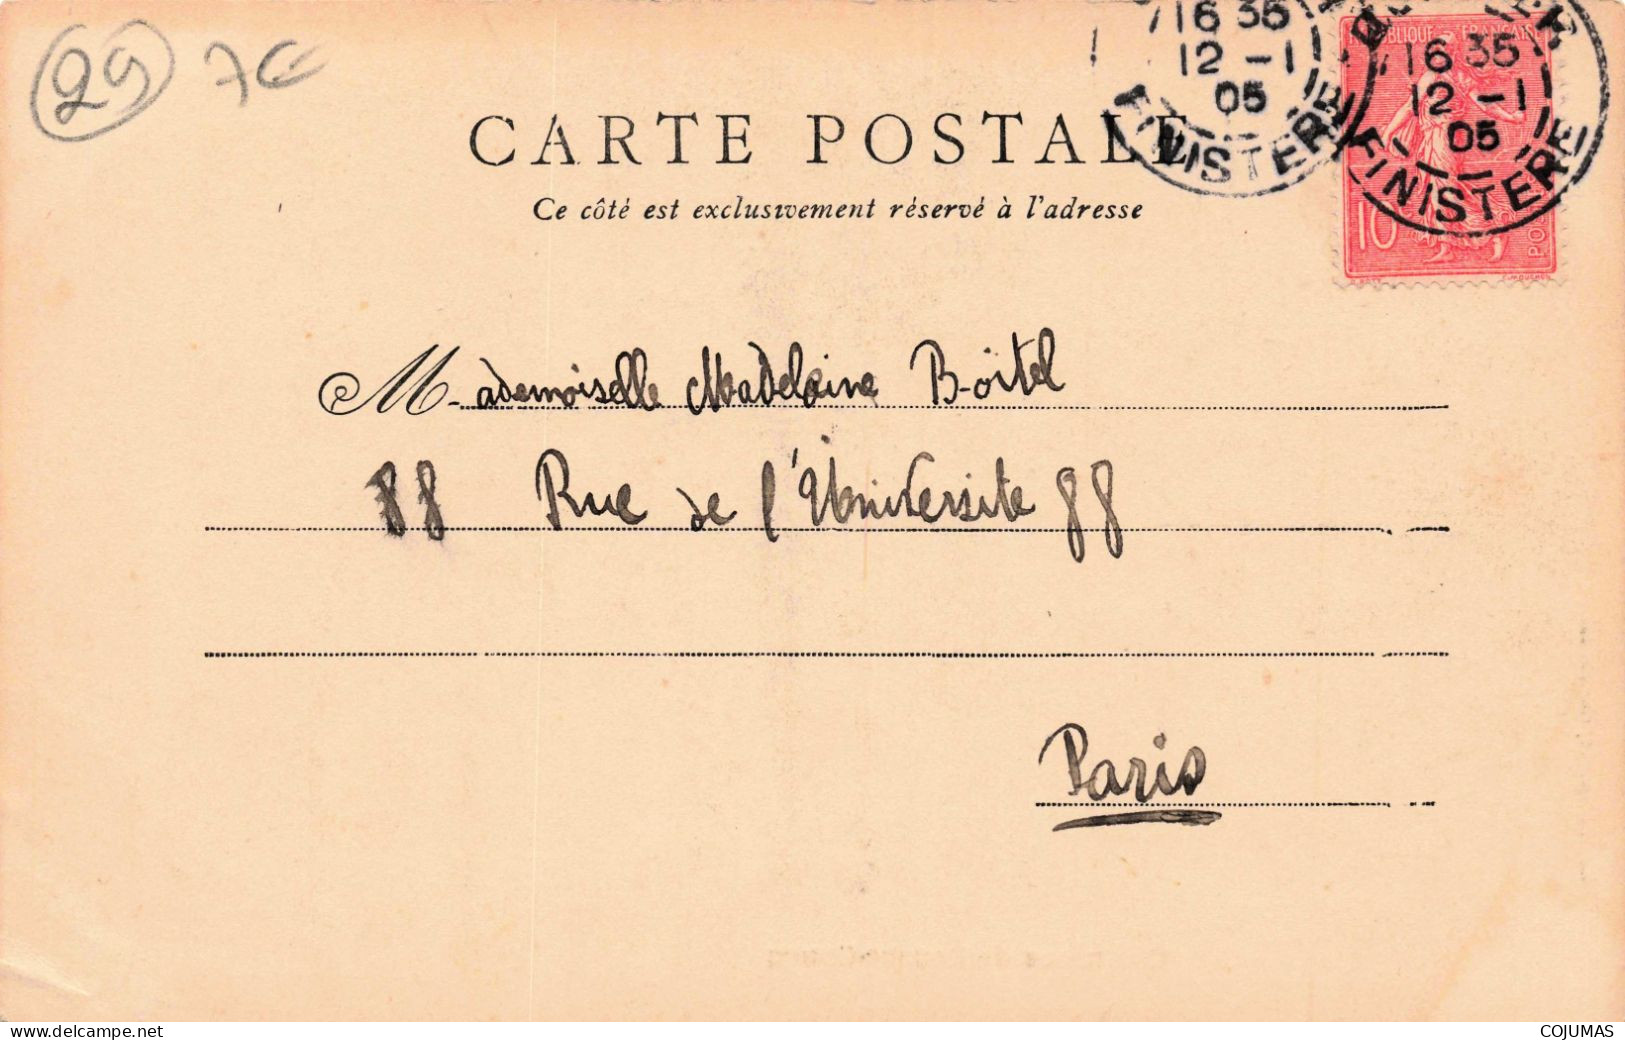 29 7€
16 35
12 -1
05
FINISTERE
REPUBLIQUE FRANCAISE
16 35
12 -1
05
FINISTERE
10
CARTE POSTALE
Ce côté est exclusivement réservé à l'adresse
Mademoiselle Madeleine Boitel
88 Rue de l'Université 88
Paris
www.delcampe.net
COJUMAS